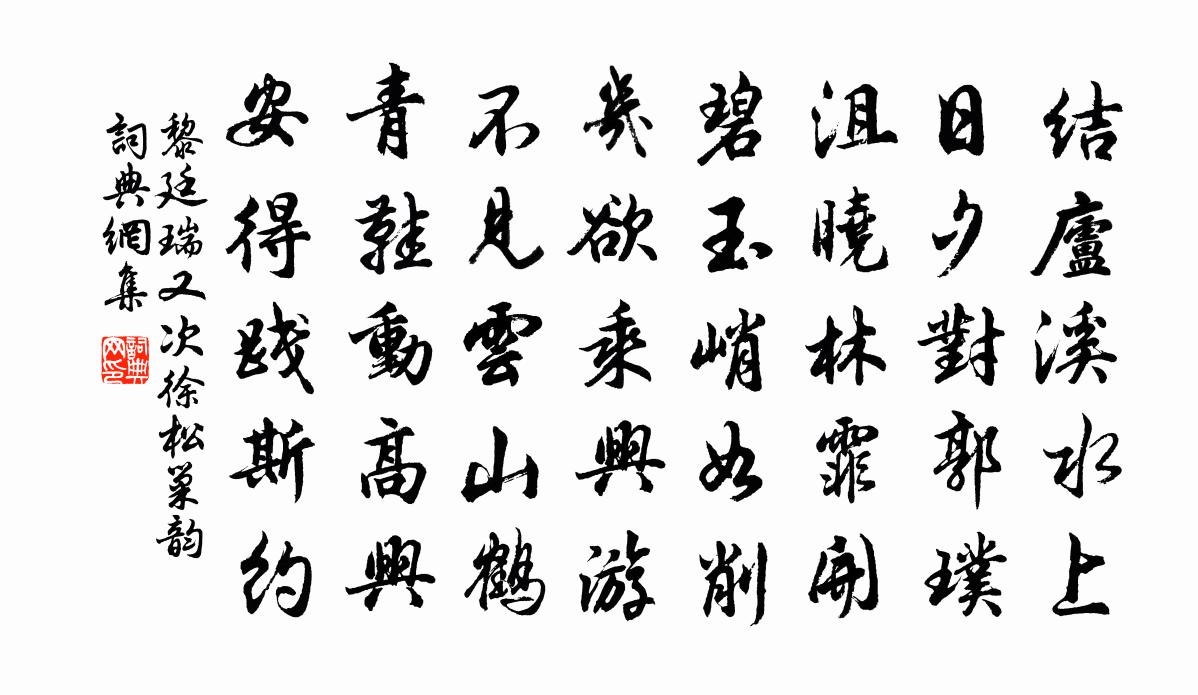 结廬溪水上
日夕對郭璞
沮曉林霏開
碧玉峭如削
幾欲乘興游
不見雲山鶴
青鞋動高興
安得踐斯約
黎廷瑞又次徐松巢韵
詞典網集
詞典網印